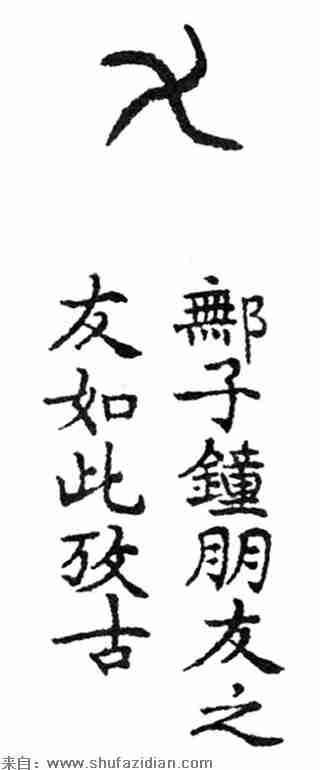 鄦子鐘朋友之
友如此攷古
来自：www.shufazidian.com